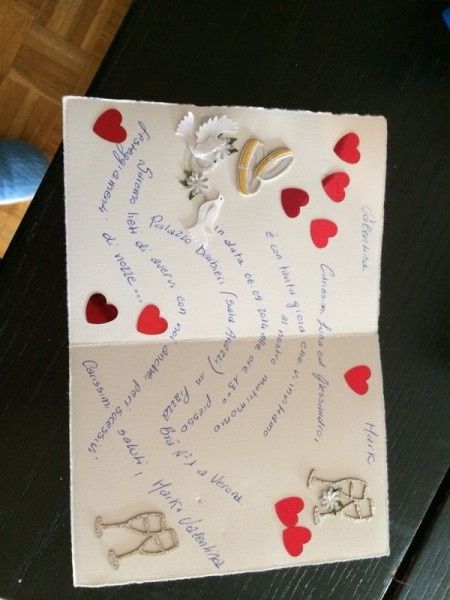 Valentina
Mark
Carissimi, Luna ed Alessandro,
è con tanta gioia che vi invitiamo
al nostro matrimonio
in data 06.09.2014 alle ore 13.00 presso
Palazzo Barbieri (Sala Arazzi) in Piazza Brà N°1 a Verona.
Saremo lieti di avervi con noi anche per i sucessivi
festeggiamenti di nozze...
Carissimi saluti,
Mark & Valentina